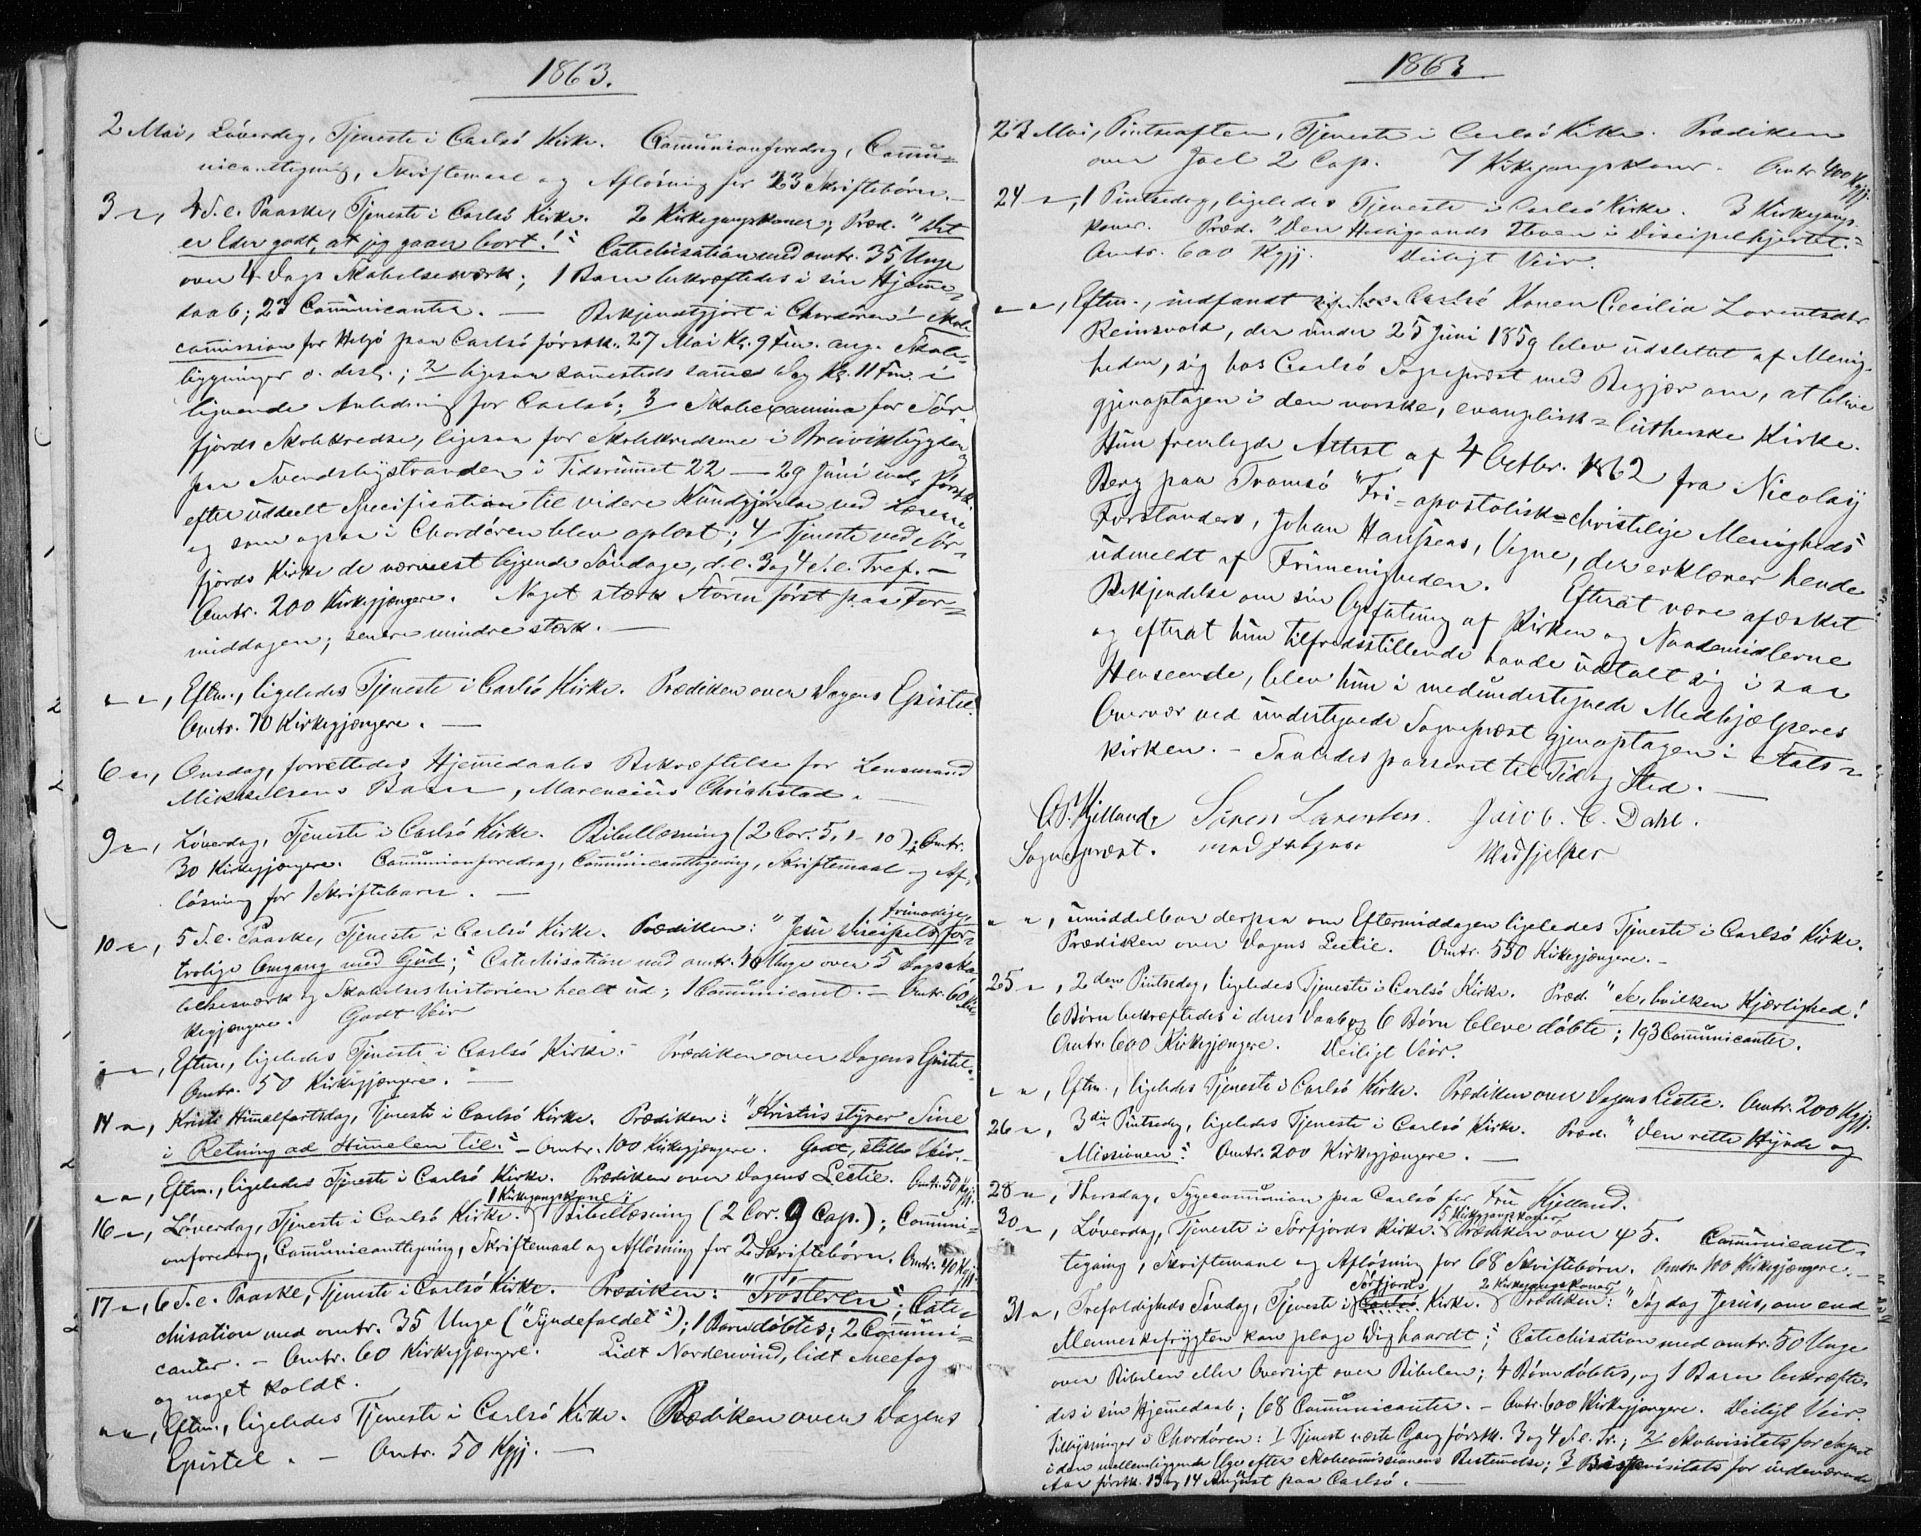 1863.
2 Mai, Löverdag, Tjeneste i Carlsö Kirke. Communionforedrag, Commu-
nicanttegning, Skriftemaal og Aflösning for 23 Skriftebörn. –
3 – , 4 S. e. Paaske, Tjeneste i Carlsö Kirke. 2 Kirkegangskoner; Præd. "Det
er Eder godt, at jeg gaaer bort!" Catechisation med omtr. 35 Unge
over 4 Dags Skabelsesværk; 1 Barn bekræftedes i sin Hjemme-
daab; 23 Communicanter. – Bekjendtgjort i Chordören: Skole
commission for Helgö paa Carlsö förstk. 27 Mai Kl. 9 Fm. ang. Skole-
bygninger o. desl.; 2/ ligesaa sammesteds samme Dag Kl. 11 Fm. i
lignende Anledning for Carlsö; 3/ Skoleexamina for Sör-
fjords Skolekredse, ligesaa for Skolekredsene i Breivikbygden og
paa Svendsbystranden i Tidsrummet 22 – 29 Juni incl. förstk.
efter uddeelt Specification til videre Kundgjörelse ved Lærerne
og som ogsaa i Chordören blev oplæst; 4/ Tjeneste ved Sör-
fjords Kirke de nærmest fölgende Söndage, d. e. 3 og 4 S. e. Tref. –
Omtr. 200 Kirkegjængere. Noget stærk Storm först paa For-
middagen; senere mindre stærk. –
– – , Eftm., ligeledes Tjeneste i Carlsö Kirke. Prædiken over Dagens Epistel.
Omtr. 70 Kirkegjængere. –
6 – , Onsdag, forrettedes Hjemmedaabs Bekræftelse for Lensmand
Mikkelsens Barn, Marencius Christstad. –
9 – , Löverdag, Tjeneste i Carlsö Kirke. Bibellæsning (2 Cor. 5, 1–10); Omtr.
30 Kirkegjængere. Communionforedrag, Communicanttegning, Skriftemaal og Af-
lösning for 1 Skriftebarn. –
frimodige,
10 – , 5 S. e. Paaske, Tjeneste i Carlsö Kirke. Prædiken: "Jesu Discipels for-
trolige Omgang med Gud"; Catechisation med omtr. 40 Unge over 5 Dags Ska-
belsesværk og Skabelseshistorien heelt ud; 1 Communicant. – Omtr. 60 Kir-
kegjængere. Godt Veir
– – , Eftm., ligeledes Tjeneste i Carlsö Kirke. Prædiken over Dagens Epistel.
Omtr. 50 Kirkegjængere. –
14 – , Kristi Himmelfartsdag, Tjeneste i Carlsö Kirke. Prædiken: "Kristus styrer Sine
i Retning ad Himmelen til." – Omtr. 100 Kirkegjængere. Godt, stille Veir. –
– – , Eftm., ligeledes Tjeneste i Carlsö Kirke. Prædiken over Dagens Lectie. Omtr. 50 Kgjj.
1 Kirkegangskone;
16 – , Löverdag, Tjeneste i Carlsö Kirke. Bibellæsning (2 Cor. 9 Cap.); Communi-
onforedrag, Communicanttegning, Skriftemaal og Aflösning for 2 Skriftebörn. Omtr. 40 Kgjj.
17 – , 6 S. e. Paaske, Tjeneste i Carlsö Kirke. Prædiken: "Trösteren"; Cate-
chisation med omtr. 35 Unge ("Syndefaldet"); 1 Barn döbtes; 2 Communi-
canter. – Omtr. 60 Kirkegjængere. Lidt Nordenvind, lidt Sneefog
og noget koldt.
– – , Eftm., ligeledes Tjeneste i Carlsö Kirke. Prædiken over Dagens
Epistel. – Omtr. 50 Kgjj. –
1863.
23 Mai, Pintseaften, Tjeneste i Carlsö Kirke. Prædiken
over Joel 2 Cap. 7 Kirkegangskoner. Omtr. 400 Kgjj.
24 – , 1 Pintsedag, ligeledes Tjeneste i Carlsö Kirke. 3 Kirkegangs-
koner. Præd. "Den Helligaands Stemme i Discipelhjertet."
Omtr. 600 Kgjj. Deiligt Veir.
– – , Eftm., indfandt sig hos Carlsö Konen Cecilia Lorentsdtr.
Reinsvold, der under 25 Juni 1859 blev udslettet af Menig-
heden, sig hos Carlsö Sognepræst med Begjær om, at blive
gjenoptagen i den norske, evangelisk-lutherske Kirke.
Hun fremlagde Attest af 4 Octbr. 1862 fra Nicolay
Berg paa Tromsö "Fri-apostolisk-christelige Menigheds"
Forstanders, Johan Hansens, Vegne, der erklærer hende
udmeldt af Frimenigheden. Efterat være afæsket
Bekjendelse om sin Opfatning af Kirken og Naademidlerne
og efterat hun tilfredsstillende havde udtalt sig i saa
Henseende, blev hun i medundertegnede Medhjælperes
Overvær ved undertegnede Sognepræst gjenoptagen i Stats-
kirken. – Saaledes passeret til Tid og Sted. –
O. S. Kjelland, Sören Larentsen. Jacob. C. Dahl.
Sognepræst. medhjelper Medhjelper
– – , umiddelbar derpaa om Eftermiddagen ligeledes Tjeneste i Carlsö Kirke.
Prædiken over Dagens Lectie. Omtr. 550 Kirkegjængere. –
25 – , 2den Pintsedag, ligeledes Tjeneste i Carlsö Kirke. Præd. "Se, hvilken Kjærlighed!
6 Börn bekræftedes i deres Daab og 6 Börn bleve döbte; 193 Communicanter.
Omtr. 600 Kirkegjængere. Deiligt Veir.
– – , Eftm., ligeledes Tjeneste i Carlsö Kirke. Prædiken over Dagens Lectie. Omtr. 200 Kgjj.
26 – , 3die Pintsedag, ligeledes Tjeneste i Carlsö Kirke. Præd. "Den rette Hyrde og
Missionen." Omtr. 200 Kirkegjængere. –
28 – , Thorsdag, Sygecommunion paa Carlsö for Fru Kjelland.
5 Kirkegangskoner
30 – , Löverdag, Tjeneste i Sörfjords Kirke. Prædiken over ψ 5. Communicant-
tegning, Skriftemaal og Aflösning for 68 Skriftebörn. Omtr. 100 Kirkegjængere. –
Sörfjords 2 Kirkegangskoner
31 – , Trefoldigheds Söndag, Tjeneste i Carlsö Kirke. Prædiken: "Søg dog Jesus, om end
Menneskefrygten kan plage Dig haardt"; Catechisation med omtr. 50 Unge
over Bibelen eller Oversigt over Bibelen; 4 Börn döbtes, og 1 Barn bekræfte-
des i sin Hjemmedaab; 68 Communicanter. – Omtr. 600 Kirkegjængere. Deiligt Veir.
Tillysninger i Chordören: 1/ Tjeneste næste Gang förstk. 3 og 4 S. e. Tr.; 2/ Skolevisitats for Sognet
i den mellemliggende Uge efter Skolecommissionens Bestemmelse; 3/ Bispevisitats for indeværende
Aar förstk. 13 og 14 August paa Carlsö. –